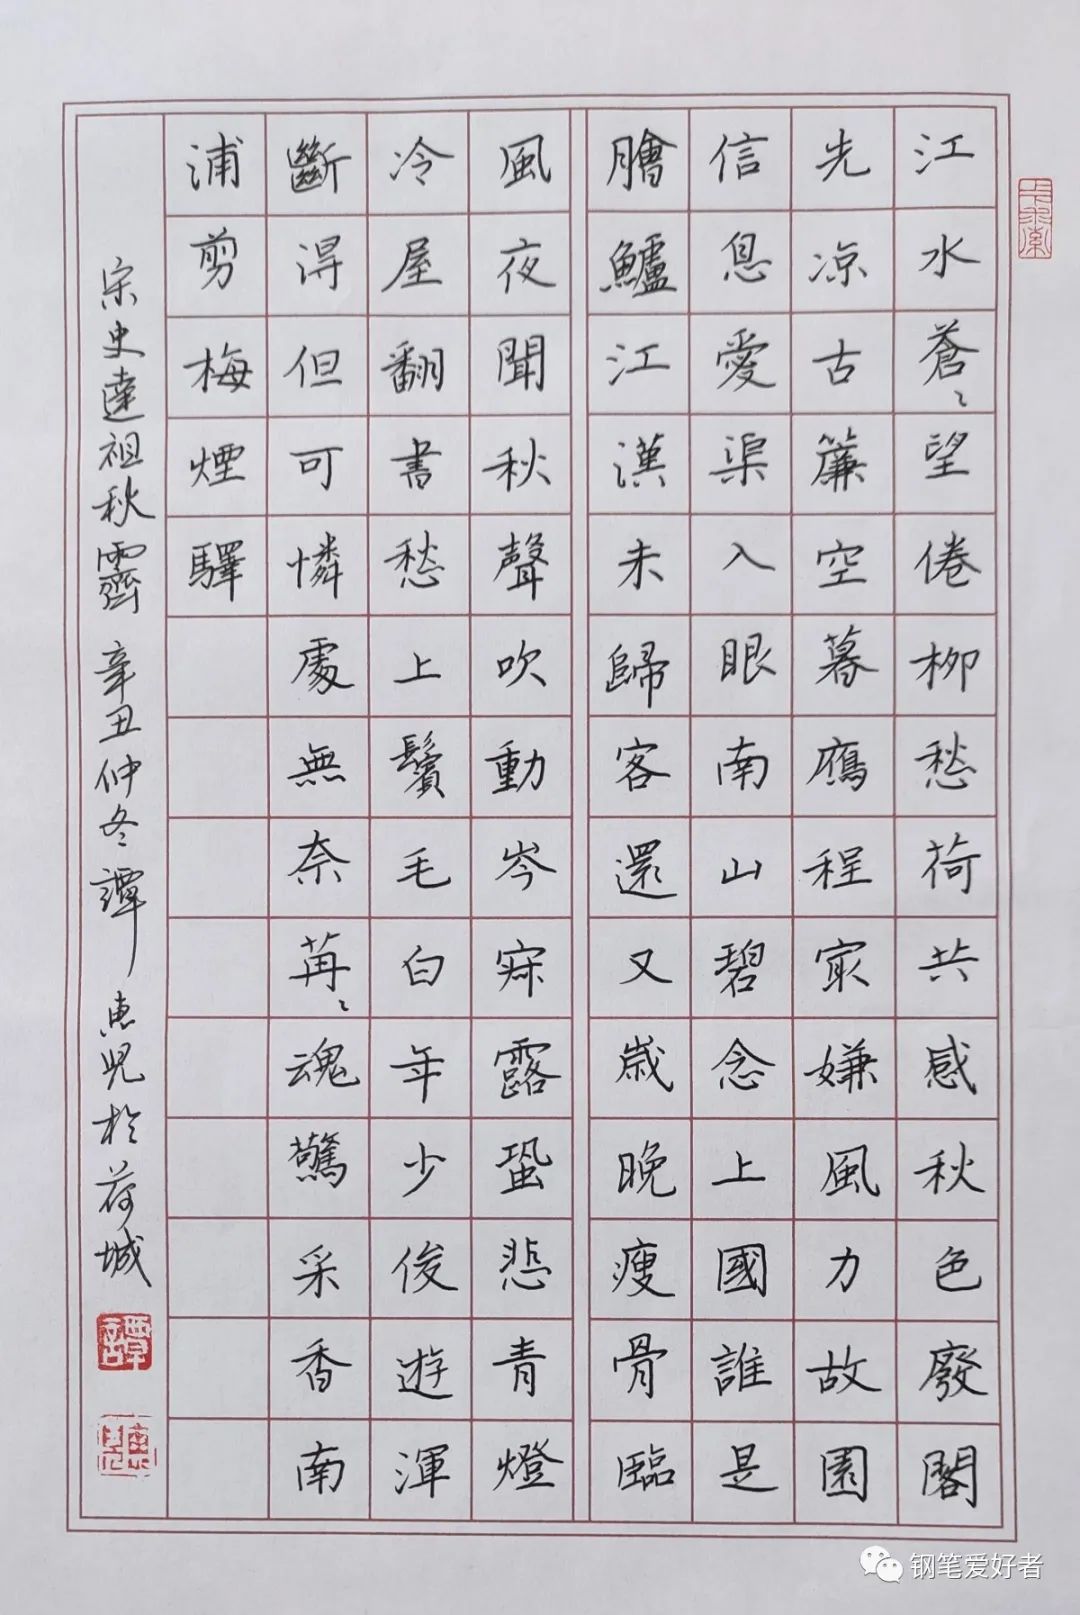 江水蒼〻望倦柳愁荷共感秋色廢閣
先凉古簾空暮鴈程㝡嫌風力故園
信息愛渠入眼南山碧念上國誰是
膾鱸江漢未歸客還又歲晚瘦骨臨
風夜聞秋聲吹動岑寂露蛩悲青燈
冷屋翻書愁上鬢毛白年少俊遊渾
斷得但可憐處無奈苒〻魂驚采香南
浦剪梅煙驛
宋史達祖秋霽 辛丑仲冬譚惠兒於荷城
譚
钢笔爱好者